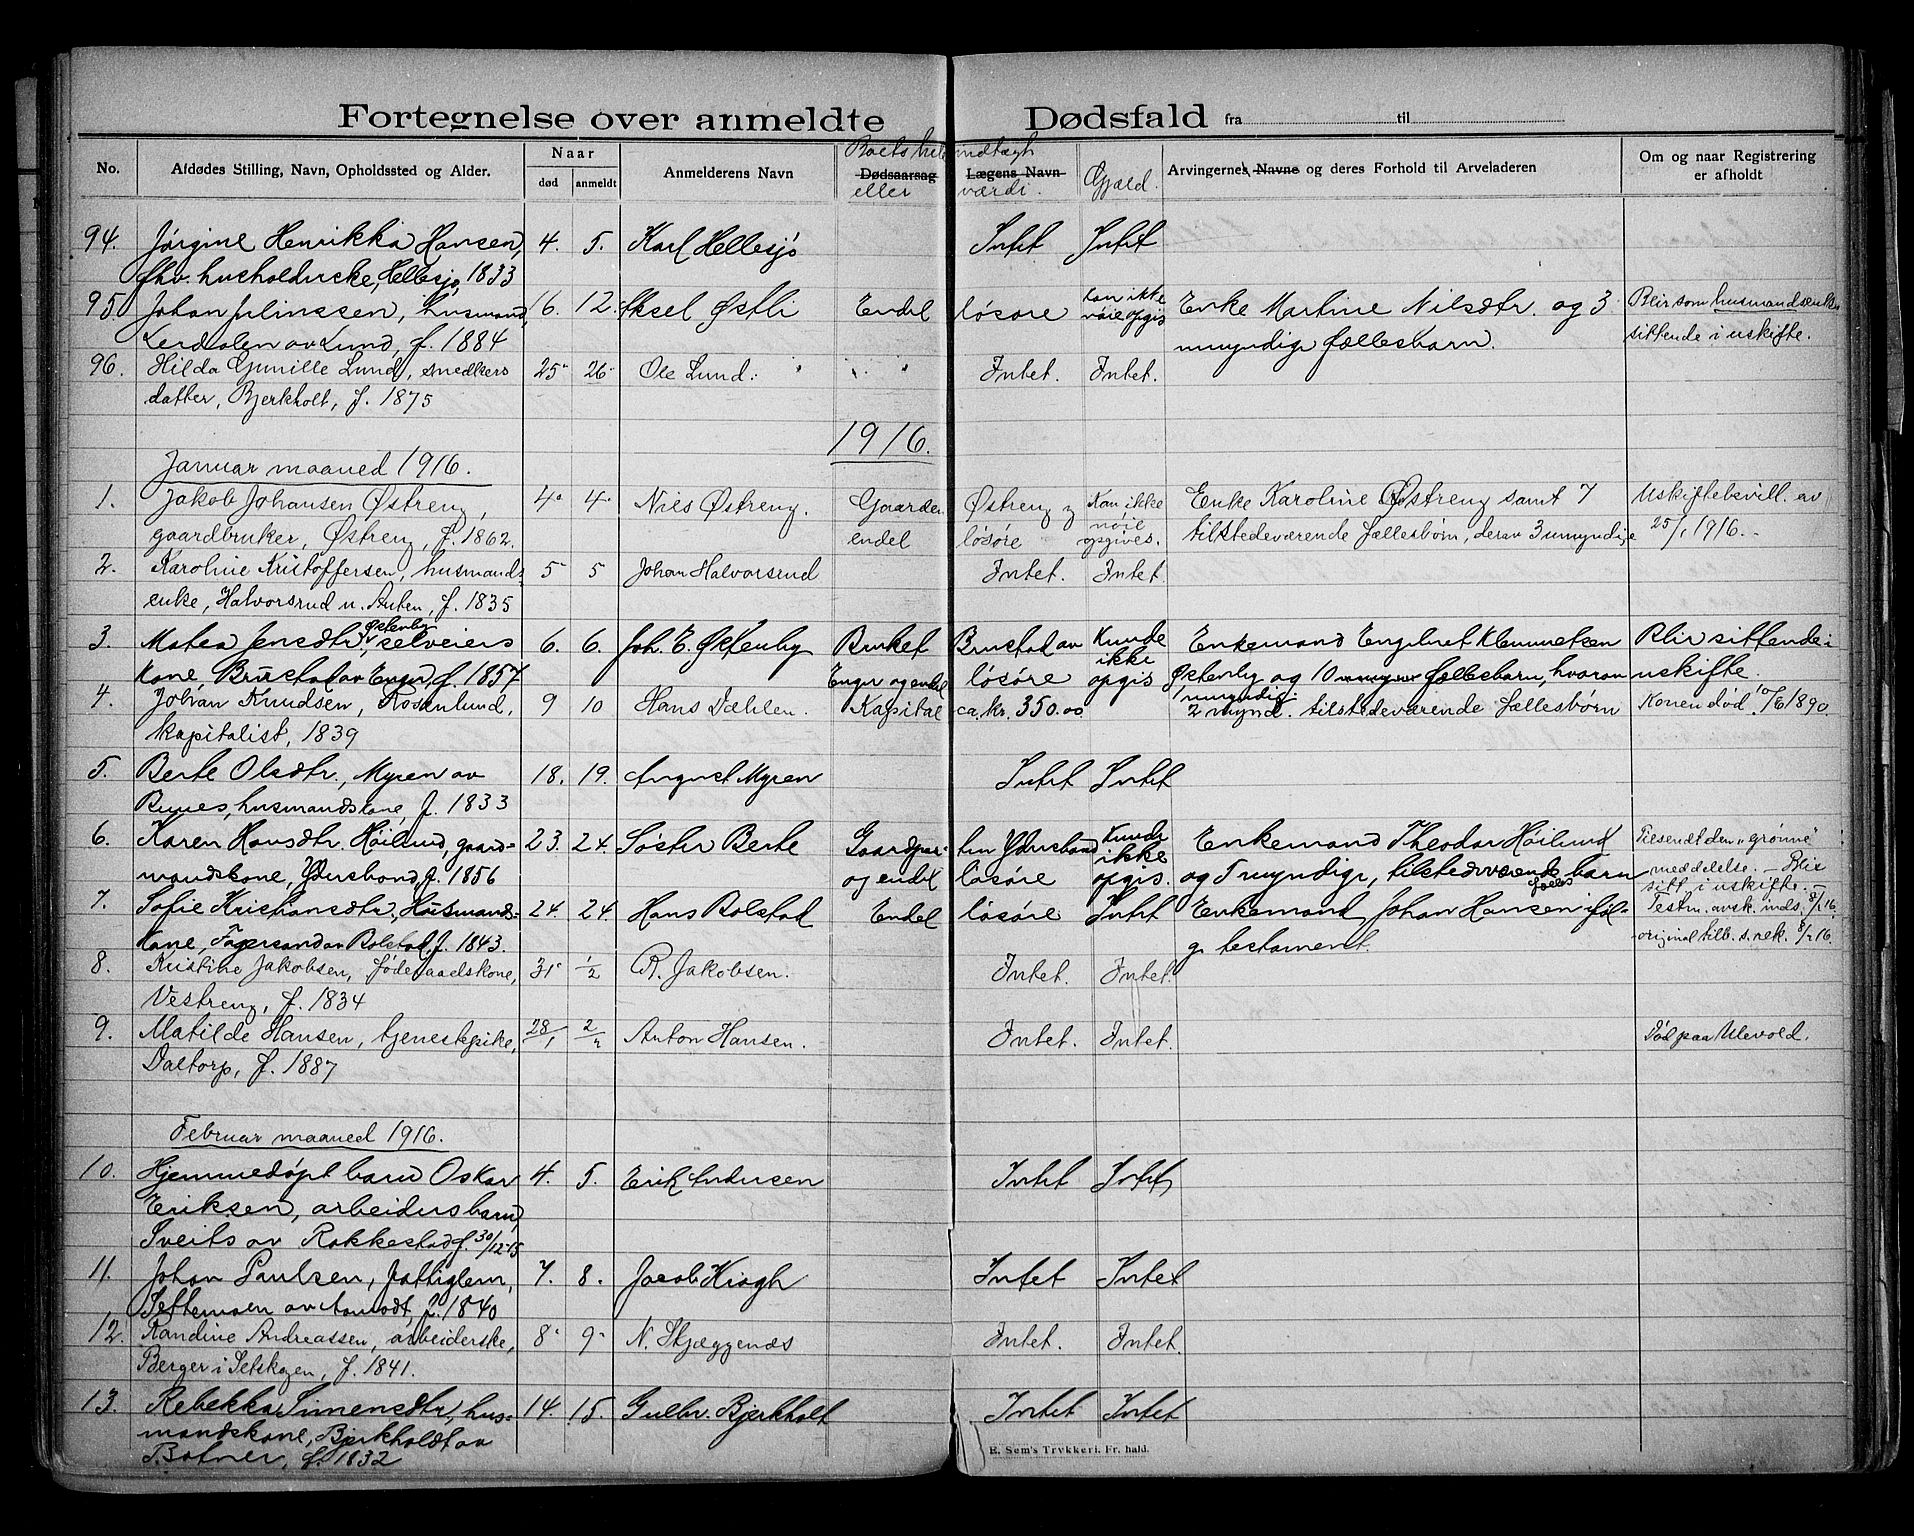 Fortegnelse over anmeldte Dødsfald fra til
No. Afdødes Stilling, Navn, Opholdssted og Alder. Naar Anmelderens Navn Dødsaarsag Lægens Navn Gjæld. Arvingernes Navne og deres Forhold til Arveladeren Om og naar Registrering
død anmeldt eller værdi. er afholdt
94. Jørgine Henrikka Hansen, 4. 5. Karl Hellesjø Intet Intet
fhv. husholderske, Hellesjø, 1833
95. Johan Julinssen, husmand, 16. 12. Aksel Østli Endel løsøre kan ikke Enke Martine Nilsdtr. og 3 Blir som husmandsenke
Lerdalen av Lund, f. 1884 nøie opgis umyndige fællesbarn. sittende i uskifte.
96. Hilda Gunille Lund, snedkers 25 26 Ole Lund. Intet. Intet.
datter, Bjerkholt, f. 1875
1916.
Januar maaned 1916.
1. Jakob Johansen Østreng, 4. 4. Nils Østreng. Gaarden Østreng og Kan ikke Enke Karoline Østreng samt 7 Uskiftebevill. av
gaardbruker, Østreng, f. 1862. endel løsøre nøie opgives. tilstedeværende fællesbørn, derav 3 umyndige 25/1 1916.
2. Karoline Kristoffersen, husmands 5 5 Johan Halvorsrud Intet. Intet.
enke, Halvorsrud u. Anten, f. 1835
3. Matea Jensdtr. Østenby, selveiers 6. 6. Joh. E. Østenby Bruket Brustad av Kunde Enkemand Engebret Klemmetsen Blir sittende i
kone, Brustad av Enger, f. 1857 Enger og endel løsøre ikke opgis Østenby og 10 fællesbarn, hvorav uskifte.
1 umyndig.
4. Johan Knudsen, Rosenlund, 9 10 Hans Dæhlen Kapital ca. kr. 350.00 2 mynd. tilstedeværende fællesbørn Konen død 10/6 1890.
kapitalist, 1839
5. Berte Olsdtr., Myren av 18. 19. August Myren Intet Intet
Bunes, husmandskone, f. 1833
6. Karen Hansdtr. Høilund, gaard- 23. 24. Søster Berte Gaardpar- Kunde Enkemand Theodor Høilund Tilsendt den "grønne"
mandskone, f. 1856 og endel løsøre ikke opgis. og 5 myndige, tilstedeværende barn meddelelse. - Blir
sitt. i uskifte.
7. Sofie Kristiansdtr., Husmands- 24. 24. Hans Bolstad Endel løsøre Intet Enkemand Johan Hansen iføl- Testm. avsk. inds. 8/2 16.
kone, Fagersand av Bolstad, f. 1843. ge testament. original tilb. s. 8/2 16.
8. Kristine Jakobsen, føderaadskone, 31 1/2 R. Jakobsen. Intet. Intet.
Vestreng, f. 1834
9. Matilde Hansen, tjenestepike, 28/1 2/2 Anton Hansen. Intet. Intet. Død paa Ulevold.
Daltorp, f. 1887
Februar maaned 1916.
10. Hjemmedøpt barn Oskar 4. 5. Erik Andersen Intet Intet
Eriksen, arbeidersbarn,
Sveits av Rakkestad, f. 30/12-15
11. Johan Paulsen, fattiglem, 7. 8. Jacob Krogh Intet Intet
Settemoen av Aamodt, f. 1840
12. Randine Andreassen, arbeiderske, 8 9 N. Skjæggenæs Intet. Intet.
Berger i Setskogen, f. 1841.
13. Rebekka Simensdtr., hus- 14. 15. Gulbr. Bjerkholt Intet Intet
mandskone, Bjerkholdt av
Botner, f. 1832
E. Sem's Trykkeri. Fr. hald.